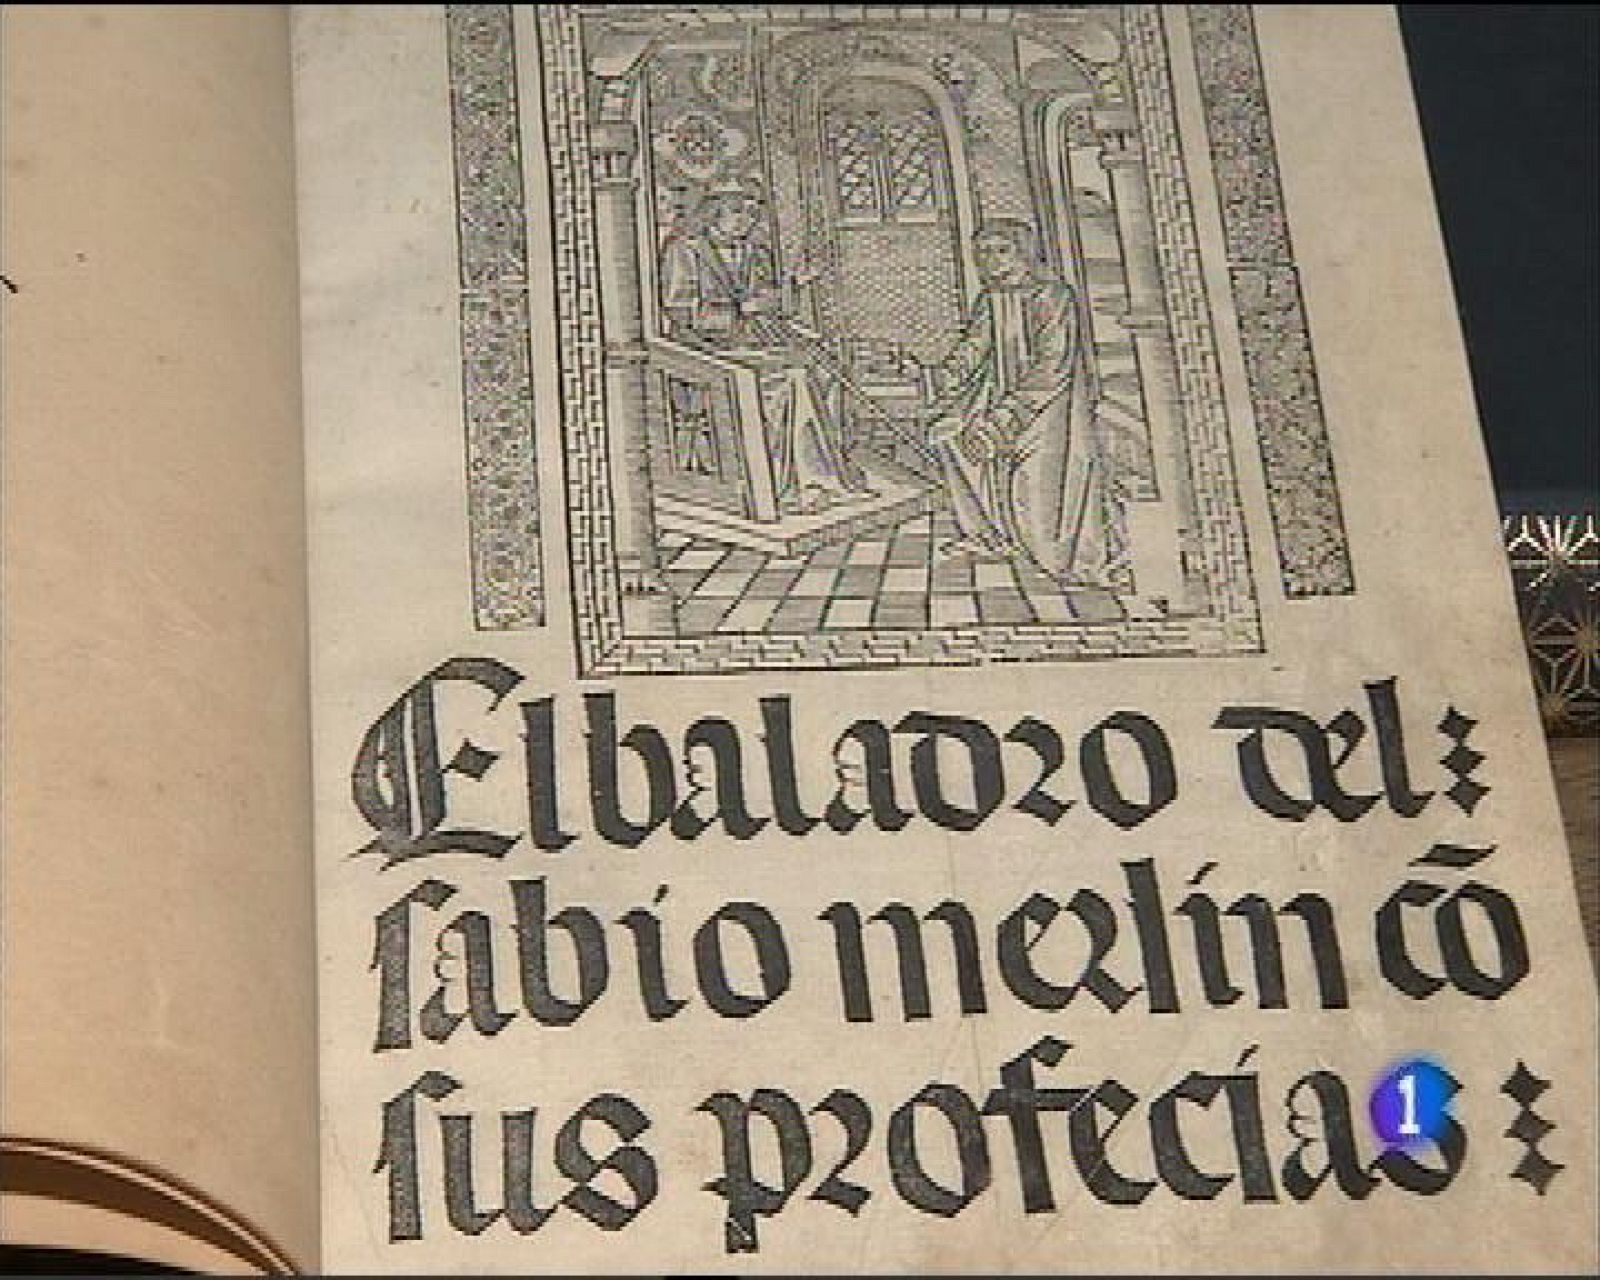 El baladro del:
sabio merlin cõ
sus profecias:
1